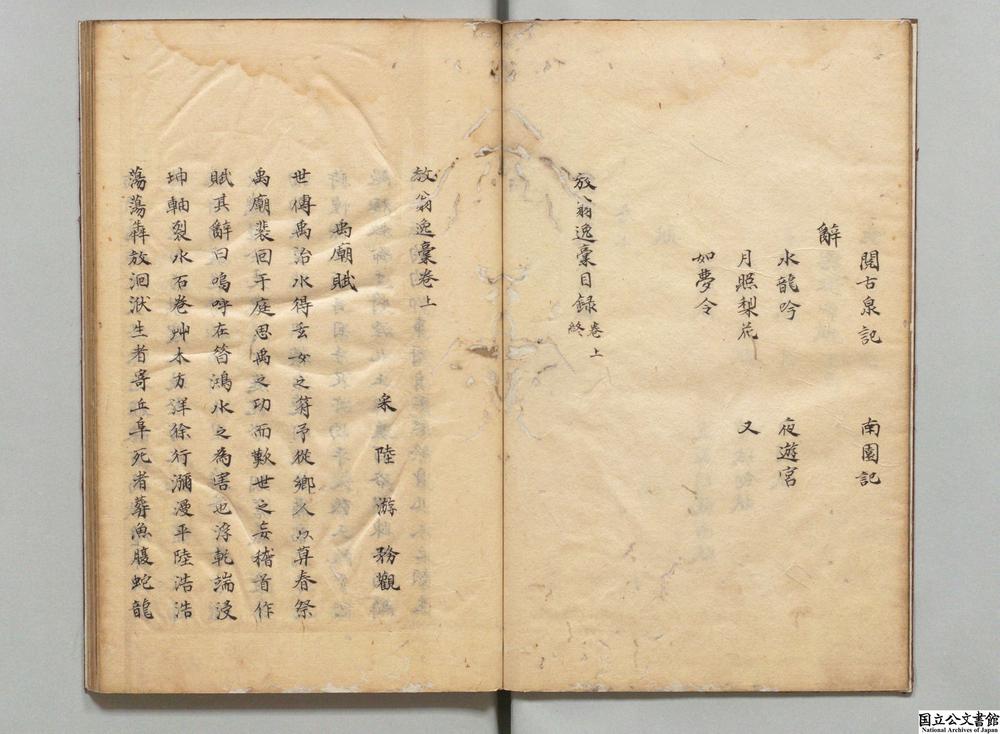 閱古泉記　南園記
辭
水龍吟　夜遊宮
月照梨花　又
如夢令
放翁逸稾目録卷上終
放翁逸稾卷上
宋　陸　游　務觀
禹廟賦
世傳禹治水得玄女之符予從鄉人以暮春祭
禹廟裴回于庭思禹之功而歎世之妄稽首作
賦其辭曰嗚呼在昔鴻水之為害也浮乾端浸
坤軸裂水石卷艸木方洋徐行瀰漫平陸浩浩
蕩蕩犇放洄洑生者寄丘阜死者葬魚腹蛇龍
国立公文書館
National Archives of Japan